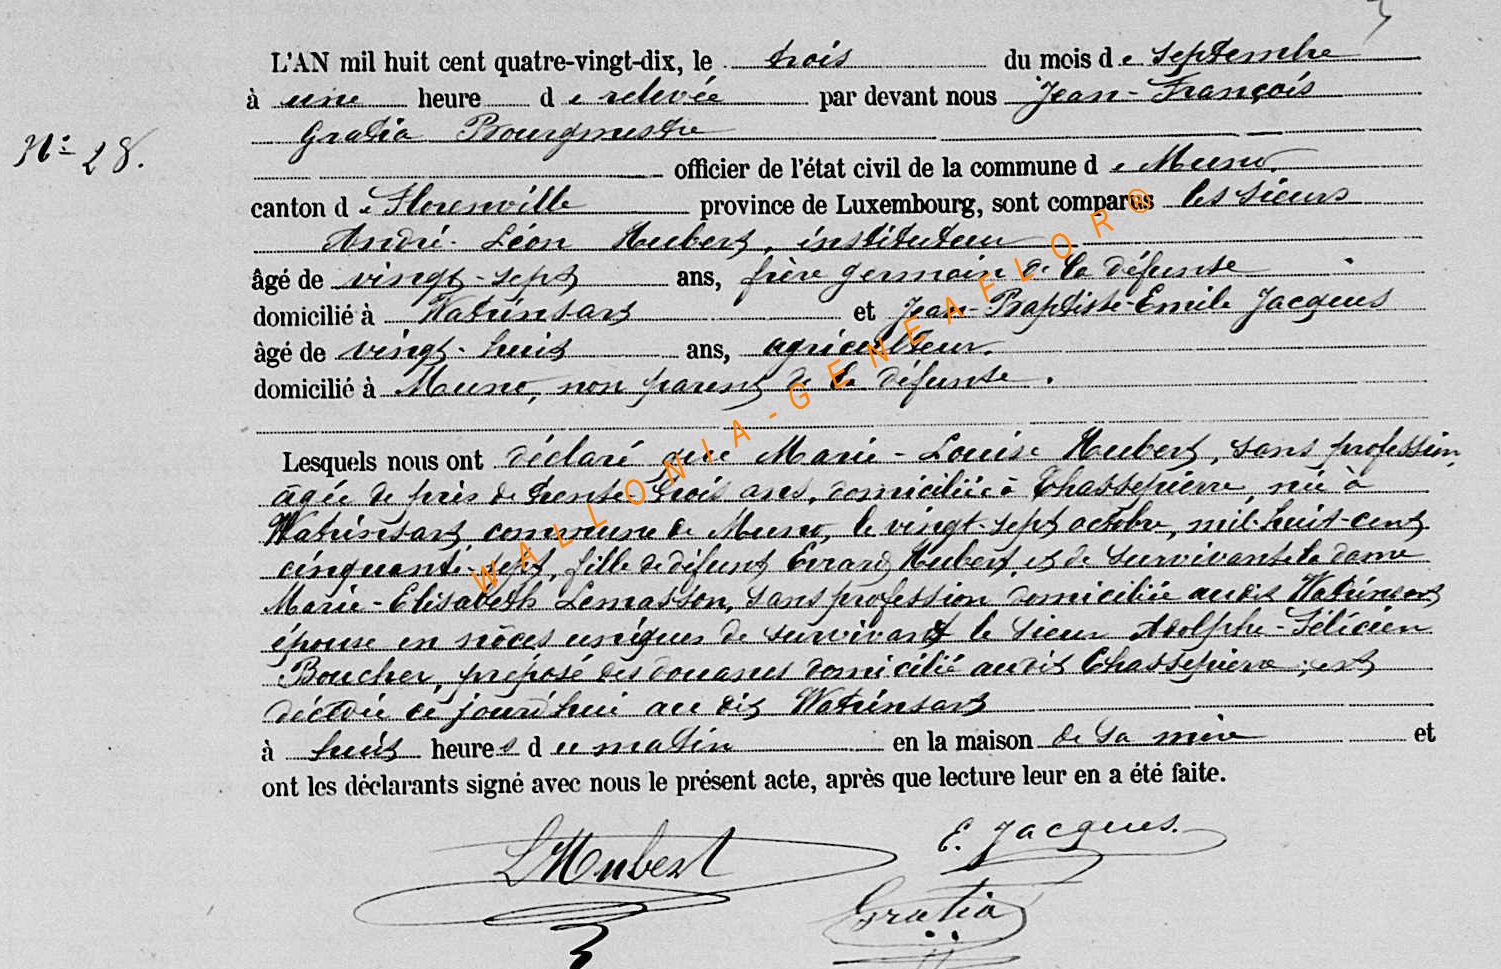 L'AN mil huit cent quatre-vingt-dix, le trois du mois de septembre
à une heure de relevée par devant nous Jean-François
Gratia Bourgmestre
N° 28.
officier de l'état civil de la commune de Muno,
canton de Florenville province de Luxembourg, sont comparus les sieurs
André-Léon Hubert, instituteur
âgé de vingt-sept ans, frère germain de la défunte
domicilié à Watrinsart et Jean-Baptiste-Emile Jacques
âgé de vingt-huit ans, agriculteur,
domicilié à Muno, non parent de la défunte.
Lesquels nous ont déclaré que Marie-Louise Hubert, sans profession,
âgée de près de trente-trois ans, domiciliée à Chassepierre, née à
Watrinsart commune de Muno, le vingt-sept octobre, mil-huit-cent
cinquante-sept, fille de défunt Evrard Hubert, et de survivante la dame
Marie-Elisabeth Lemasson, sans profession domiciliée audit Watrinsart
épouse en nôces uniques de survivant le sieur Adolphe-Félicien
Boucher, préposé des douanes domicilié audit Chassepierre; est
décédée ce jourd'hui au dit Watrinsart
à huit heures du matin en la maison de sa mère et
ont les déclarants signé avec nous le présent acte, après que lecture leur en a été faite.
LHubert
E. Jacques.
Gratia
WALLONIA-GENEAFLOR®